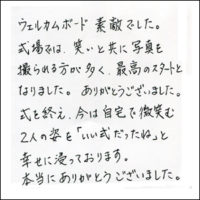 ウェルカムボード 素敵でした。
式場では、笑いと共に写真を
撮られる方が多く、最高のスタートと
なりました。ありがとうございました。
式を終え、今は自宅で微笑む
2人の姿を「いい式だったね」と
幸せに浸っております。
本当にありがとうございました。